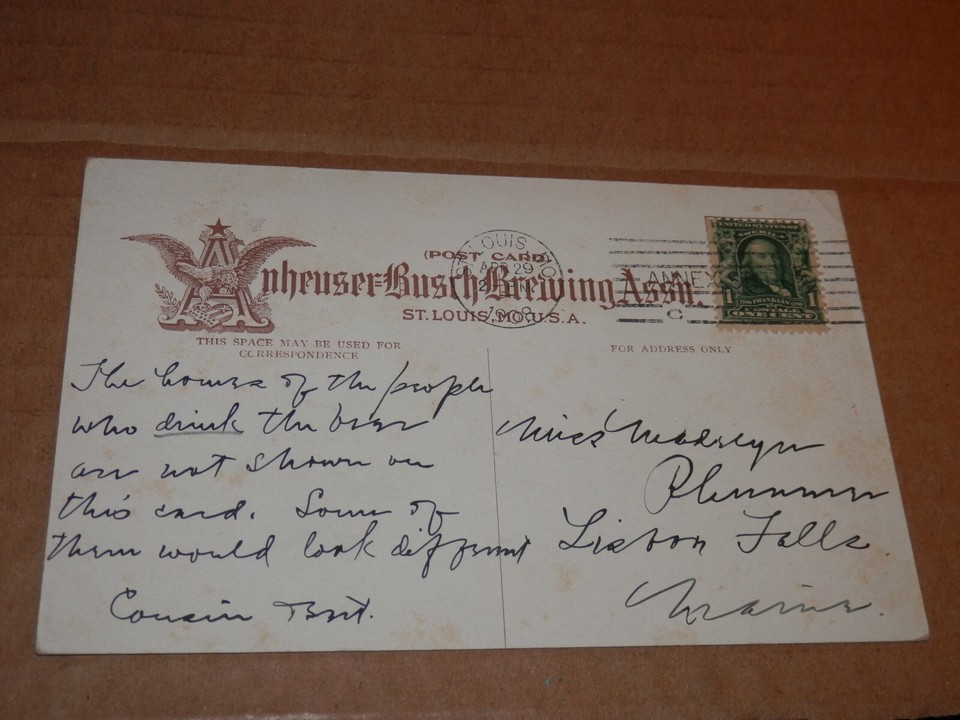 (POST CARD)
Anheuser-Busch Brewing Ass'n.
ST. LOUIS, MO., U.S.A.
THIS SPACE MAY BE USED FOR
CORRESPONDENCE
FOR ADDRESS ONLY
ST. LOUIS MO.
APR 29
1908
ANNEX
C
UNITED STATES OF
AMERICA
1 FRANKLIN 1
POSTAGE
ONE CENT
The homes of the people
who drink the beer
are not shown on
this card. Some of
them would look different
Cousin Bert.
Miss Madelyn
Plummer
Lisbon Falls.
Maine.